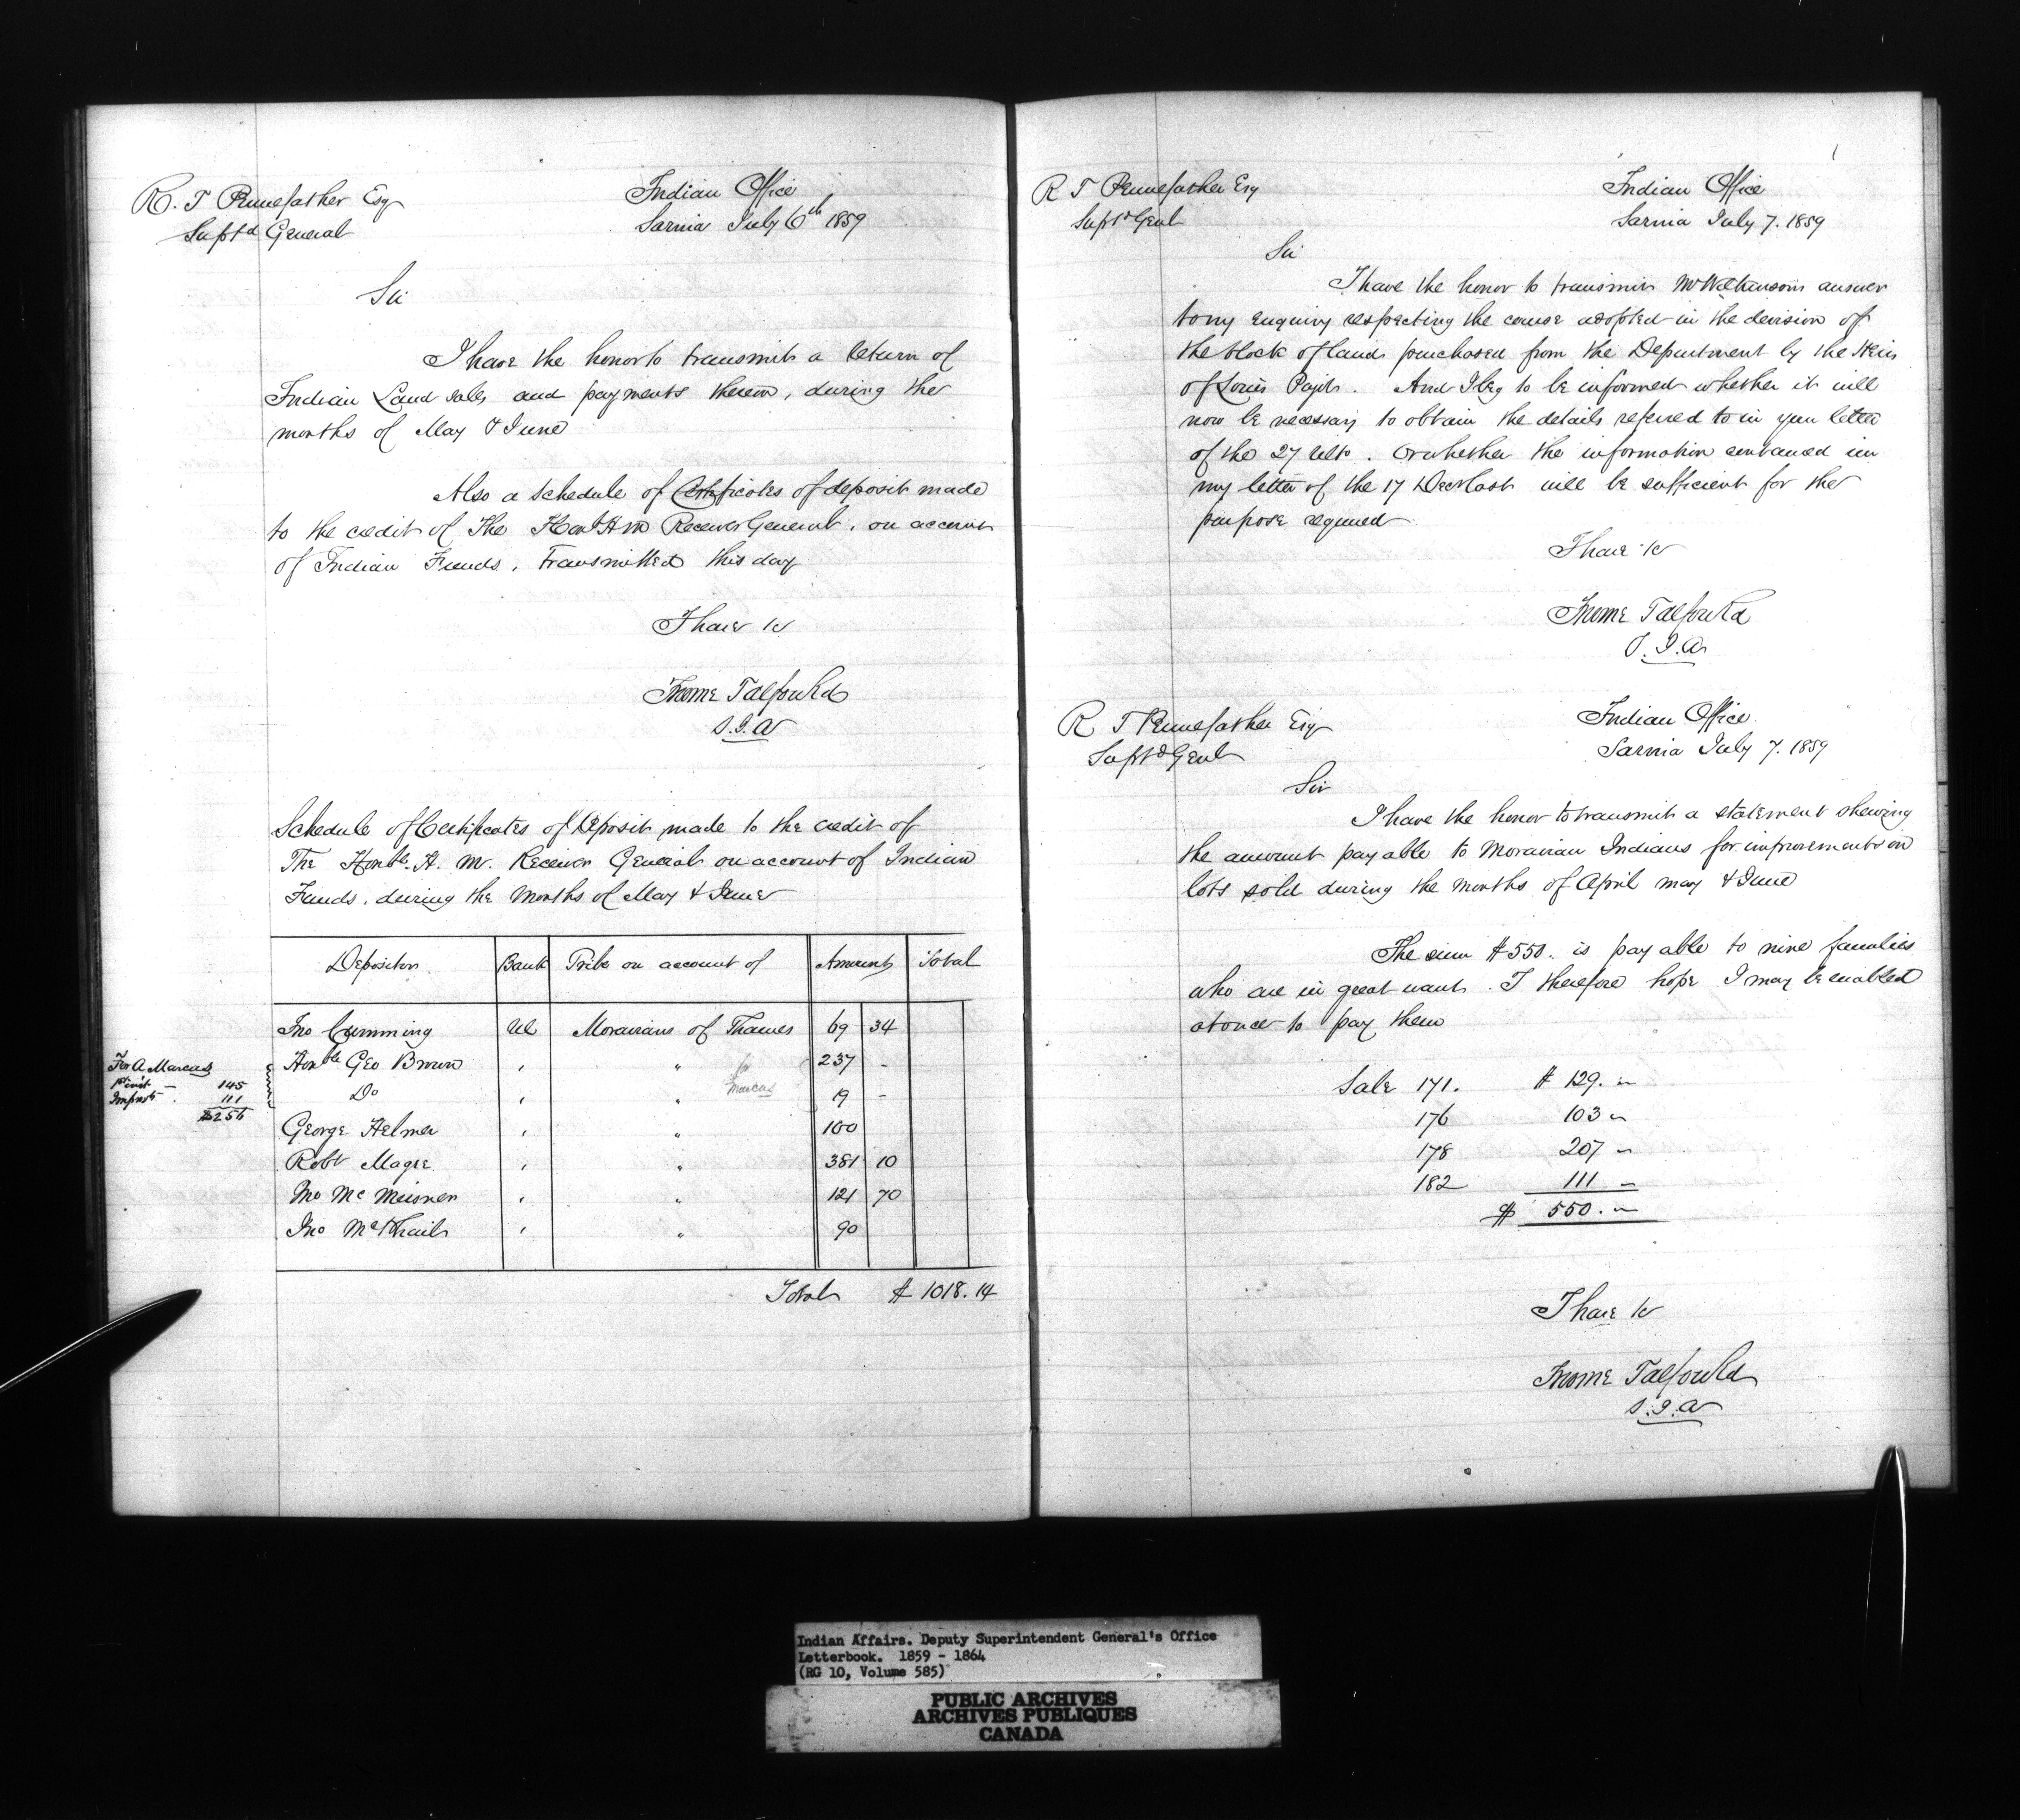 R. T Pennefather Esq
Supt.d General
Indian Office
Sarnia July 6th 1859
Sir
I have the honor to transmit a return of
Indian Land sales and payments thereon, during the
months of May & June
Also a schedule of Certificates of deposit made
to the credit of The Honble H M Receiver General, on account
of Indian Funds, transmitted this day
I have &c
Froome Talfourd
S.I.A
Schedule of Certificates of Deposit made to the credit of
The Honble. H. M. Receiver General on account of Indian
Funds, during the months of May & June
Depositor Bank Tribe on account of Amount Total
Jno Cumming UC Moravians of Thames 69 34
Honble Geo Brown , " for 237 -
Do , " Marcus 19 -
George Helmer , " 100
Robt Magee , " 381 10
Jno Mc Meisner , " 121 70
Jno McPhail , " 90
Total $ 1018.14
For A Marcus
1st inst - 145
Improvts . 111
$256
R T Pennefather Esq
Supt.d Genl
Indian Office
Sarnia July 7. 1859
Sir
I have the honor to transmit Mr Wilkinsons answer
to my enquiry respecting the course adopted in the devision of
the block of lands purchased from the Department by the Heirs
of Louis . And I beg to be informed whether it will
now be necessary to obtain the details refered to in your letter
of the 27 ulto. or whether the information contained in
my letter of the 17 Decr last will be sufficient for the
purpose required
I have &c
Froome Talfourd
S.I.A
R T Pennefather Esq
Supt.d Genl
Indian Office
Sarnia July 7. 1859
Sir
I have the honor to transmit a statement shewing
the amount payable to Moravian Indians for improvements on
lots sold during the months of April May & June
The sum $550. is payable to nine families
who are in great want. I therefore hope I may be enabled
at once to pay them
Sale 171. $ 129. -
176 103 -
178 207 -
182 111 -
$ 550. -
I have &c
Froome Talfourd
S.I.A
Indian Affairs. Deputy Superintendent General's Office
Letterbook. 1859 - 1864
(RG 10, Volume 585)
PUBLIC ARCHIVES
ARCHIVES PUBLIQUES
CANADA